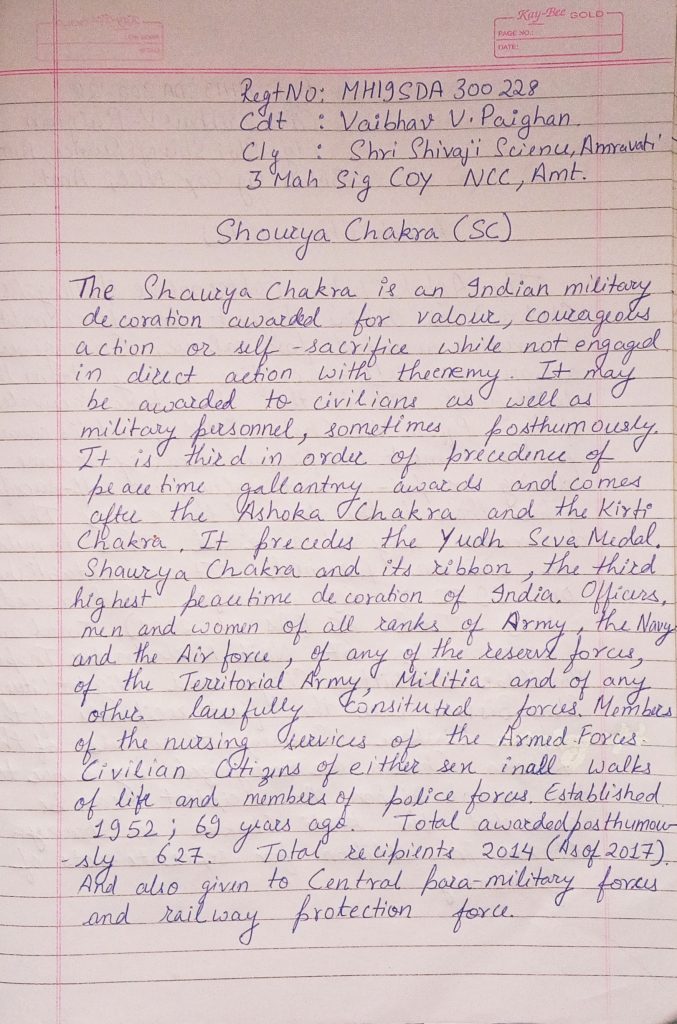 Kay-Bee GOLD
PAGE NO.:
DATE:
Regt No: MH19SDA 300 228
Cdt : Vaibhav V. Paighan.
Clg : Shri Shivaji Science, Amravati
3 Mah Sig Coy NCC, Amt.
Shourya Chakra (SC)
The Shaurya Chakra is an Indian military
decoration awarded for valour, courageous
action or self-sacrifice while not engaged
in direct action with theenemy. It may
be awarded to civilians as well as
military personnel, sometimes posthumously.
It is third in order of precedence of
peacetime gallantry awards and comes
after the Ashoka Chakra and the Kirti
Chakra. It precedes the Yudh Seva Medal.
Shaurya Chakra and its ribbon, the third
highest peacetime decoration of India. Officers,
men and women of all ranks of Army, the Navy
and the Air force, of any of the reserve forces,
of the Territorial Army, Militia and of any
other lawfully consituted forces. Members
of the nursing services of the Armed Forces.
Civilian Citizens of either sex inall walks
of life and members of police forces. Established
1952; 69 years ago. Total awardedposthumou-
-sly 627. Total recipients 2014 (As of 2017).
And also given to Central para-military forces
and railway protection force.